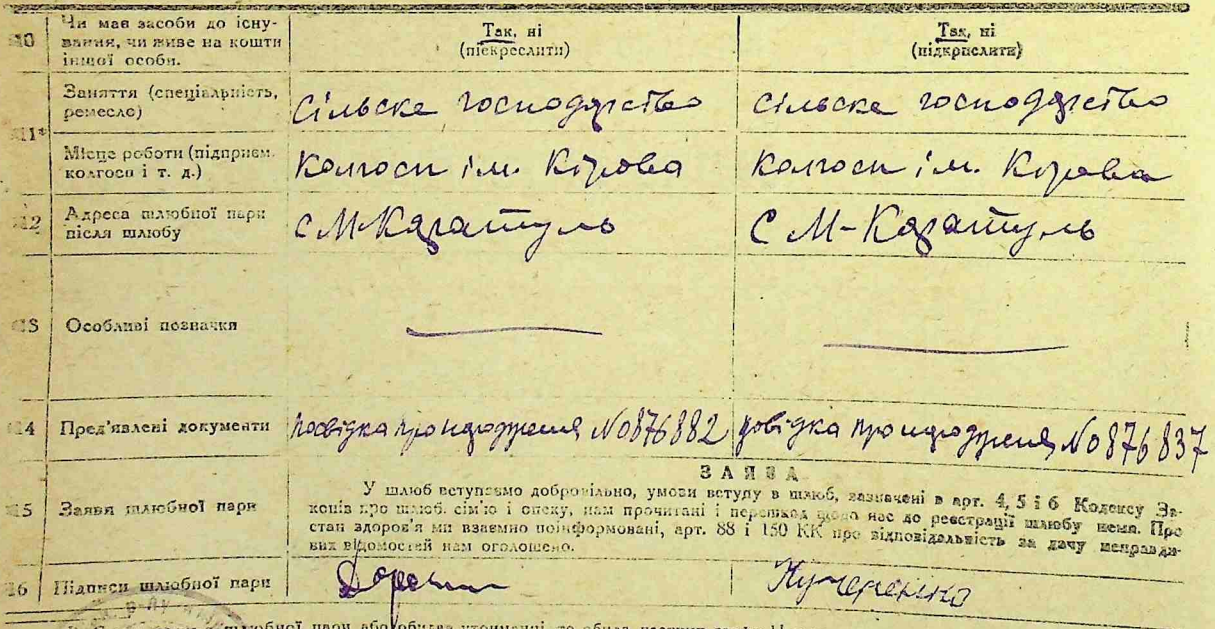 10 Чи має засоби до існу-
вання, чи живе на кошти
іншої особи.
Так, ні
(підкреслити)
Так, ні
(підкрислити)
11*
Заняття (спеціальність,
ремесло)
Сільске господарство
Сільске господарство
Місце роботи (підприєм.
колгосп і т. д.)
Колгосп ім. Кірова
Колгосп ім. Кірова
12 Адреса шлюбної пари
після шлюбу
С М-Каратуль
С М-Каратуль
13 Особливі позначки
14 Пред'явлені документи
посвідка про народження №876882
довідка про народження №876837
15 Заява шлюбної пари
ЗАЯВА
У шлюб вступаємо добровільно, умови вступу в шлюб, зазначені в арт. 4, 5 і 6 Кодексу За-
конів про шлюб, сім'ю і опеку, нам прочитані і перешкод щодо нас до реєстрації шлюбу нема. Про
стан здоров'я ми взаємно поінформовані, арт. 88 і 150 КК про відповідальність за дачу неправди-
вих відомостей нам оголошено.
16 Підписи шлюбної пари
Кучеренко
шлюбної пари або